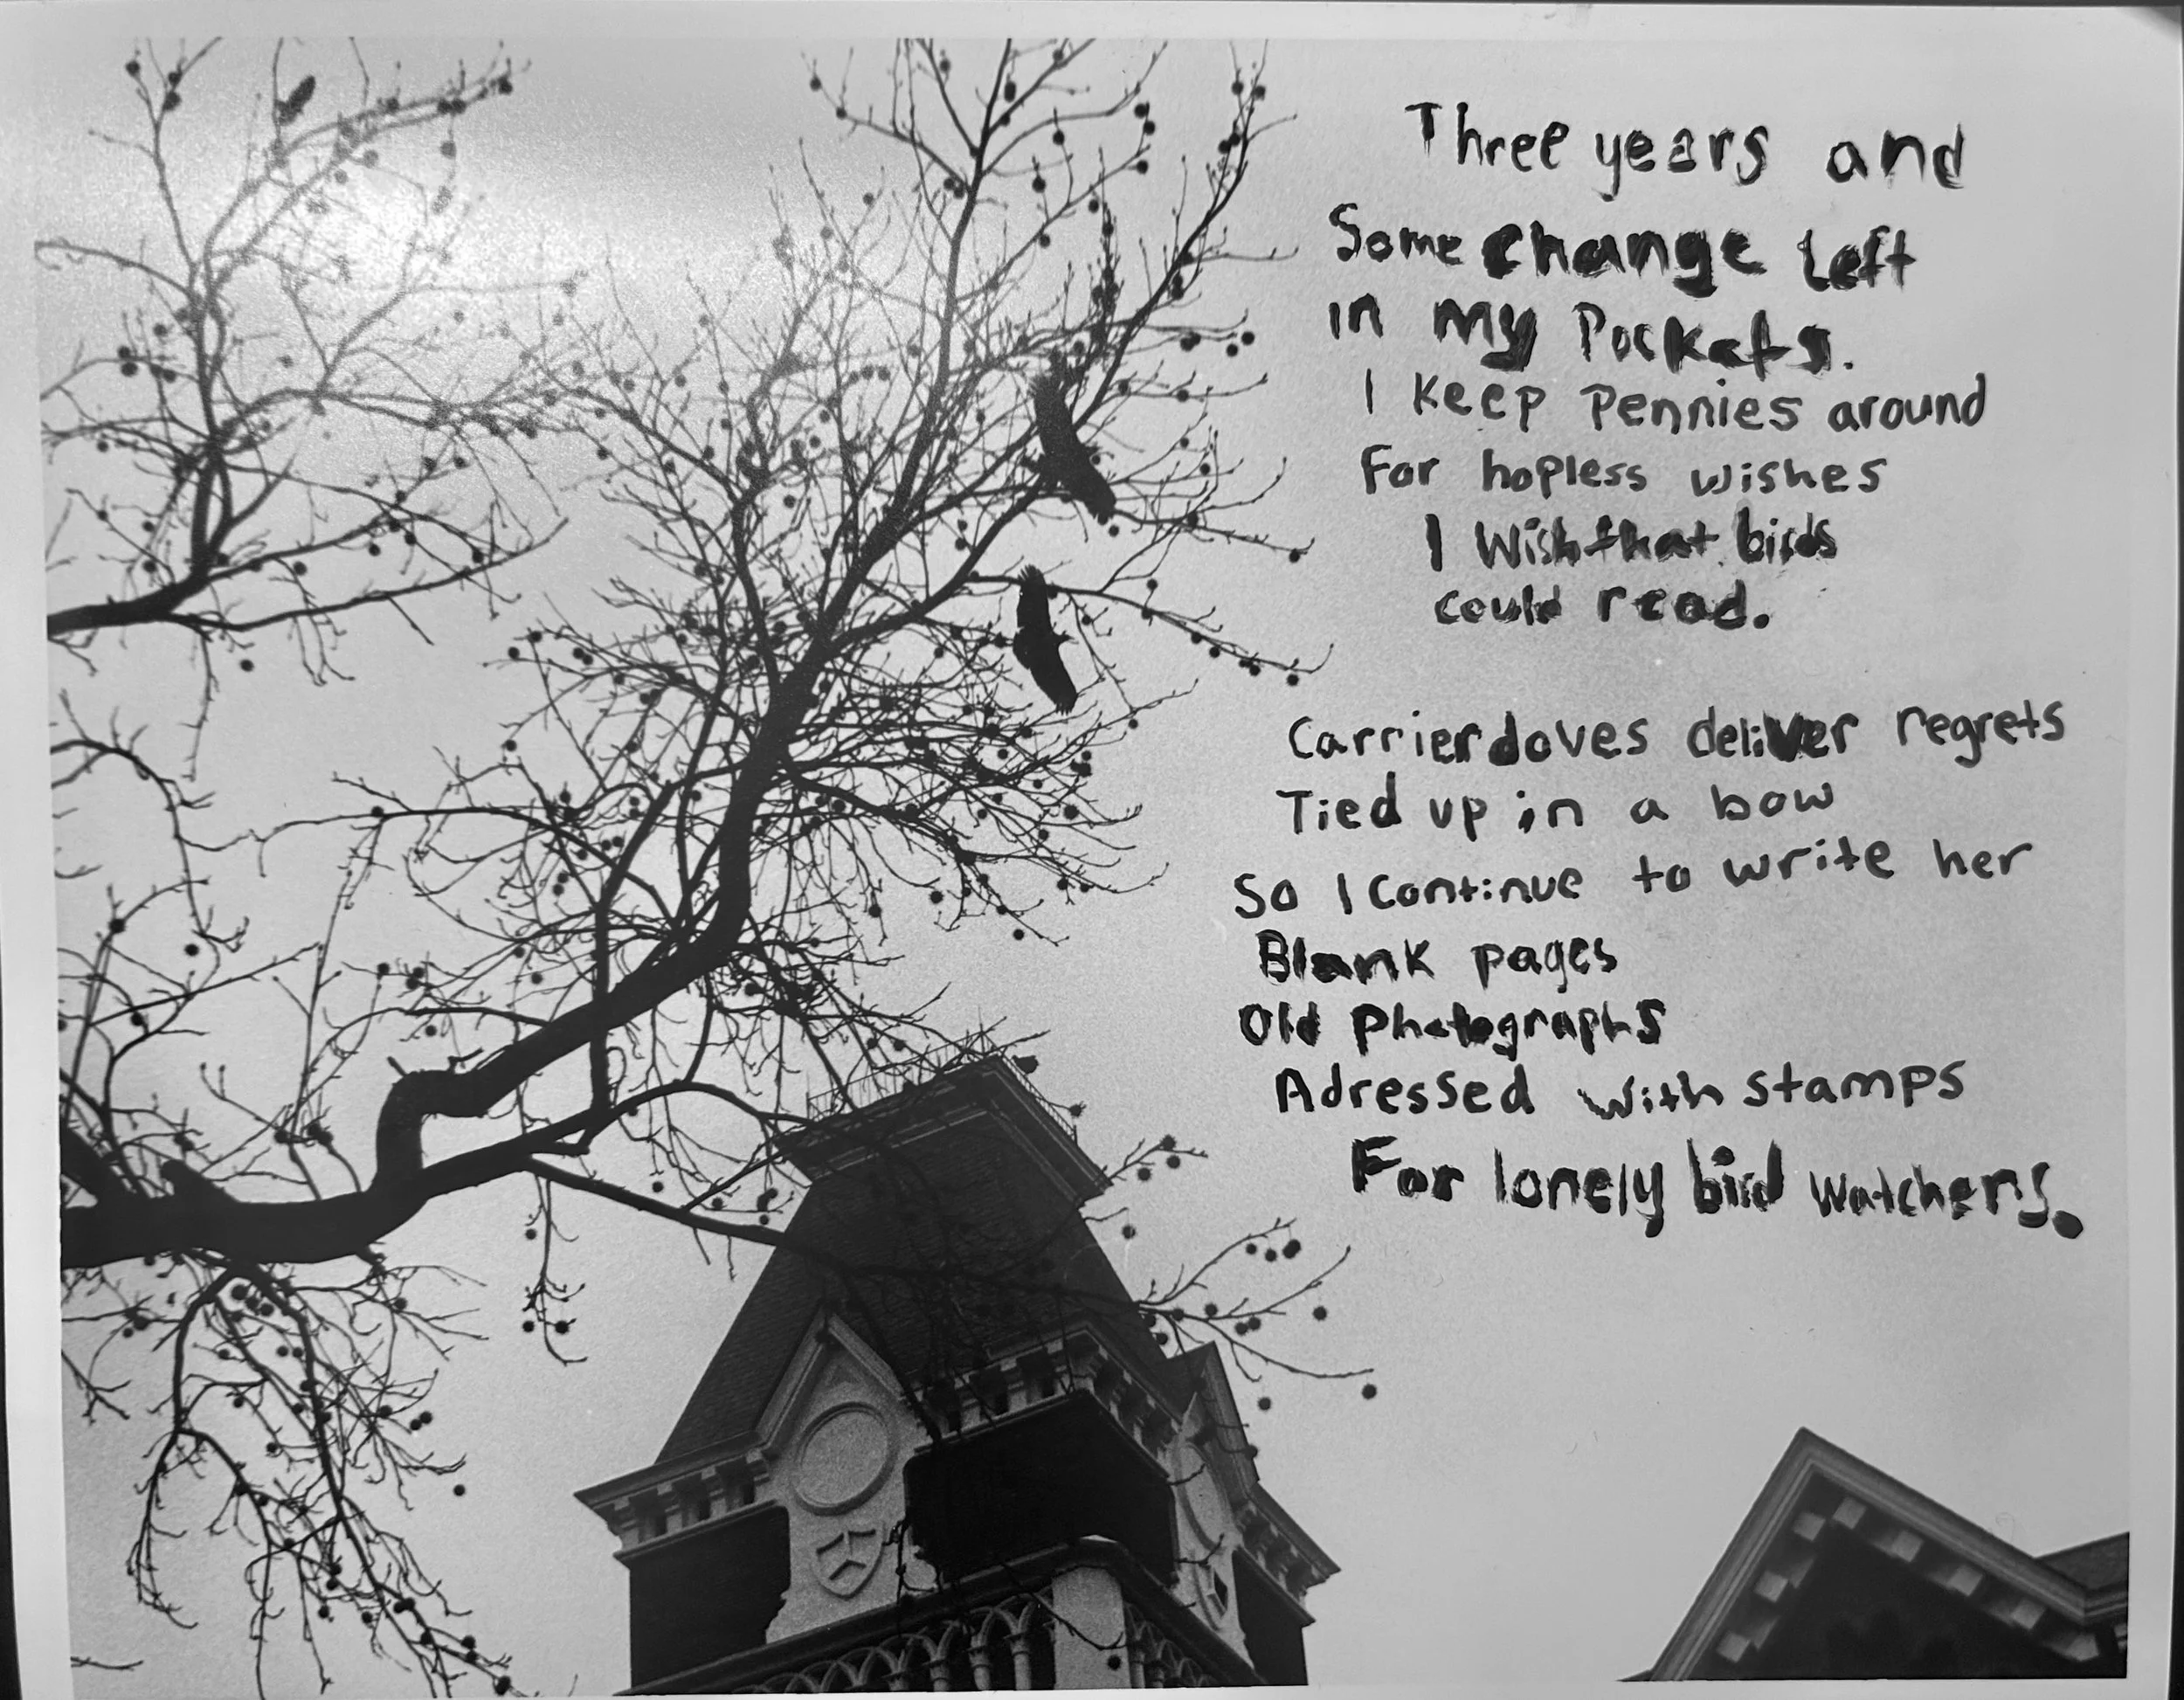 Three years and
Some change left
in my Pockets.
I keep Pennies around
For hopless wishes
I Wish that birds
could read.
Carrier doves deliver regrets
Tied up in a bow
So I Continue to write her
Blank pages
Old Photographs
Adressed with stamps
For lonely bird watchers.